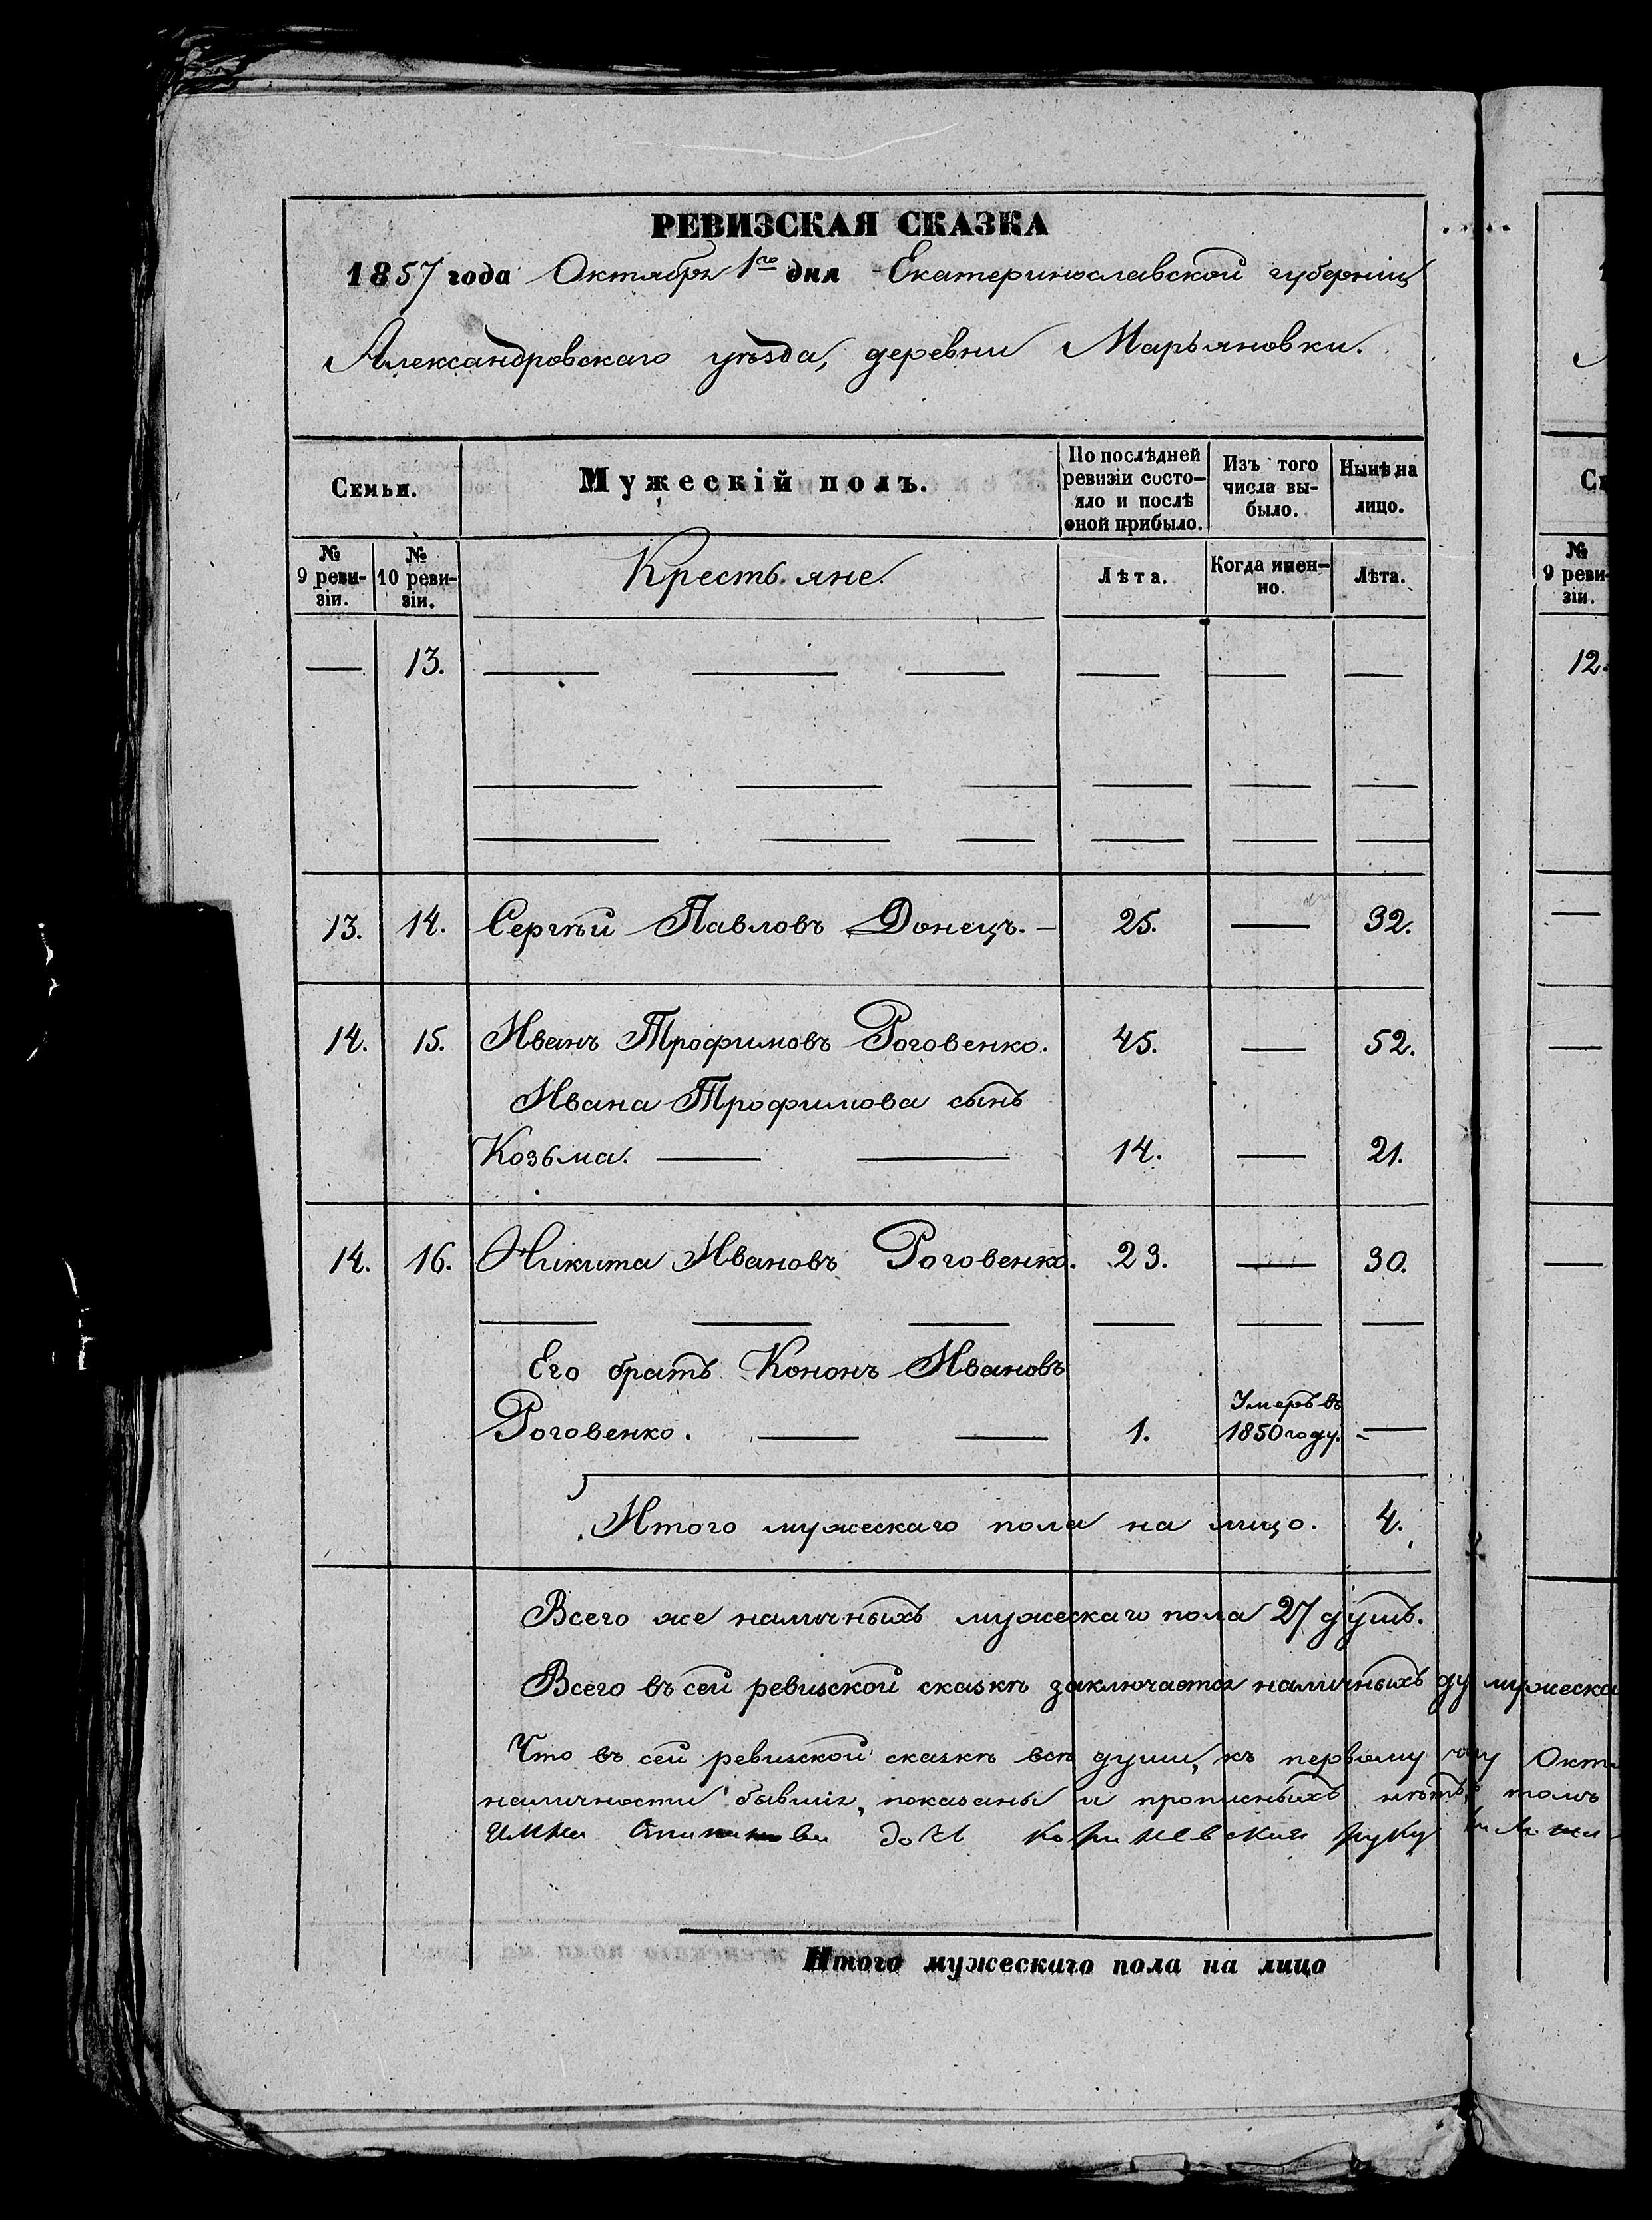 РЕВИЗСКАЯ СКАЗКА
1857 года Октября 1го дня Екатеринославской губерніи
Александровскаго уѣзда, деревни Марьяновки.
Семьи.
Мужескій полъ.
По послѣдней
ревизіи состо-
яло и послѣ
оной прибыло.
Изъ того
числа вы-
было.
Нынѣ на
лицо.
№
9 реви-
зіи.
№
10 реви-
зіи.
Крестьяне.
Лѣта.
Когда имен-
но.
Лѣта.
13.
13. 14. Сергѣй Павловъ Донецъ. 25. 32.
14. 15. Иванъ Трофимовъ Роговенко. 45. 52.
Ивана Трофимова сынъ
Козьма. 14. 21.
14. 16. Никита Ивановъ Роговенко. 23. 30.
Его братъ Кононъ Ивановъ
Роговенко. 1. Умеръ въ
1850 году.
Итого мужескаго пола на лицо. 4.
Всего же наличныхъ мужескаго пола 27 душъ.
Всего въ сей ревизской сказкѣ заключается наличныхъ ду мужеска
Что въ сей ревизской сказкѣ всѣ души, къ первому Окт
наличности бывшія, показаны и прописныхъ нѣтъ, томъ
руку
Итого мужескаго пола на лицо
№
9 реви-
зіи.
12.